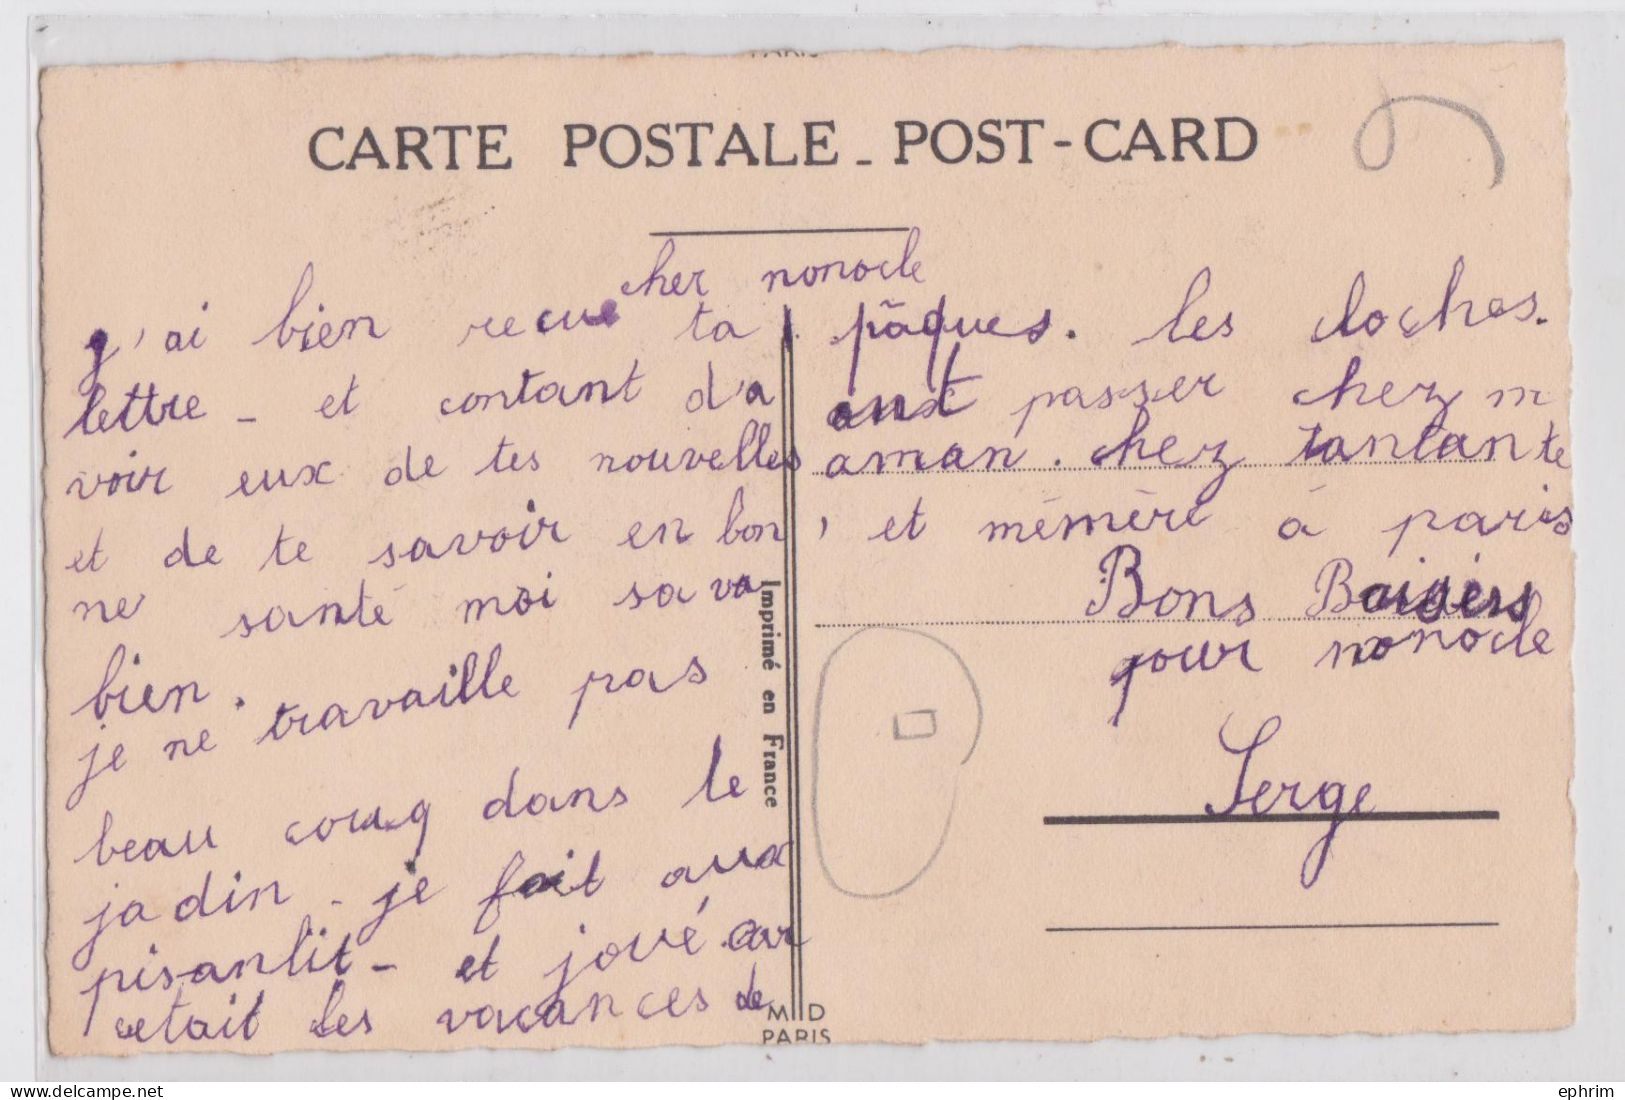 PARIS
CARTE POSTALE - POST-CARD
cher nonocle
j'ai bien recue ta
lettre - et contant d'a
voir eux de tes nouvelles
et de te savoir en bon
ne santé moi sa va
bien.
je ne travaille pas
beau couq dans le
jadin - je fait aux
pisanlit - et joué car
cetait les vacances de
pãques. les cloches.
ont passer chez m
aman. chez tantante
, et mémère à paris
Bons Baigers
pour nonocle
Serge
Imprimé en France
M D
PARIS
ephrim